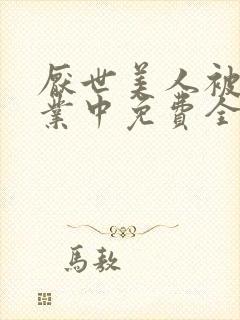 厭世美人被
業中免費全
馬敖